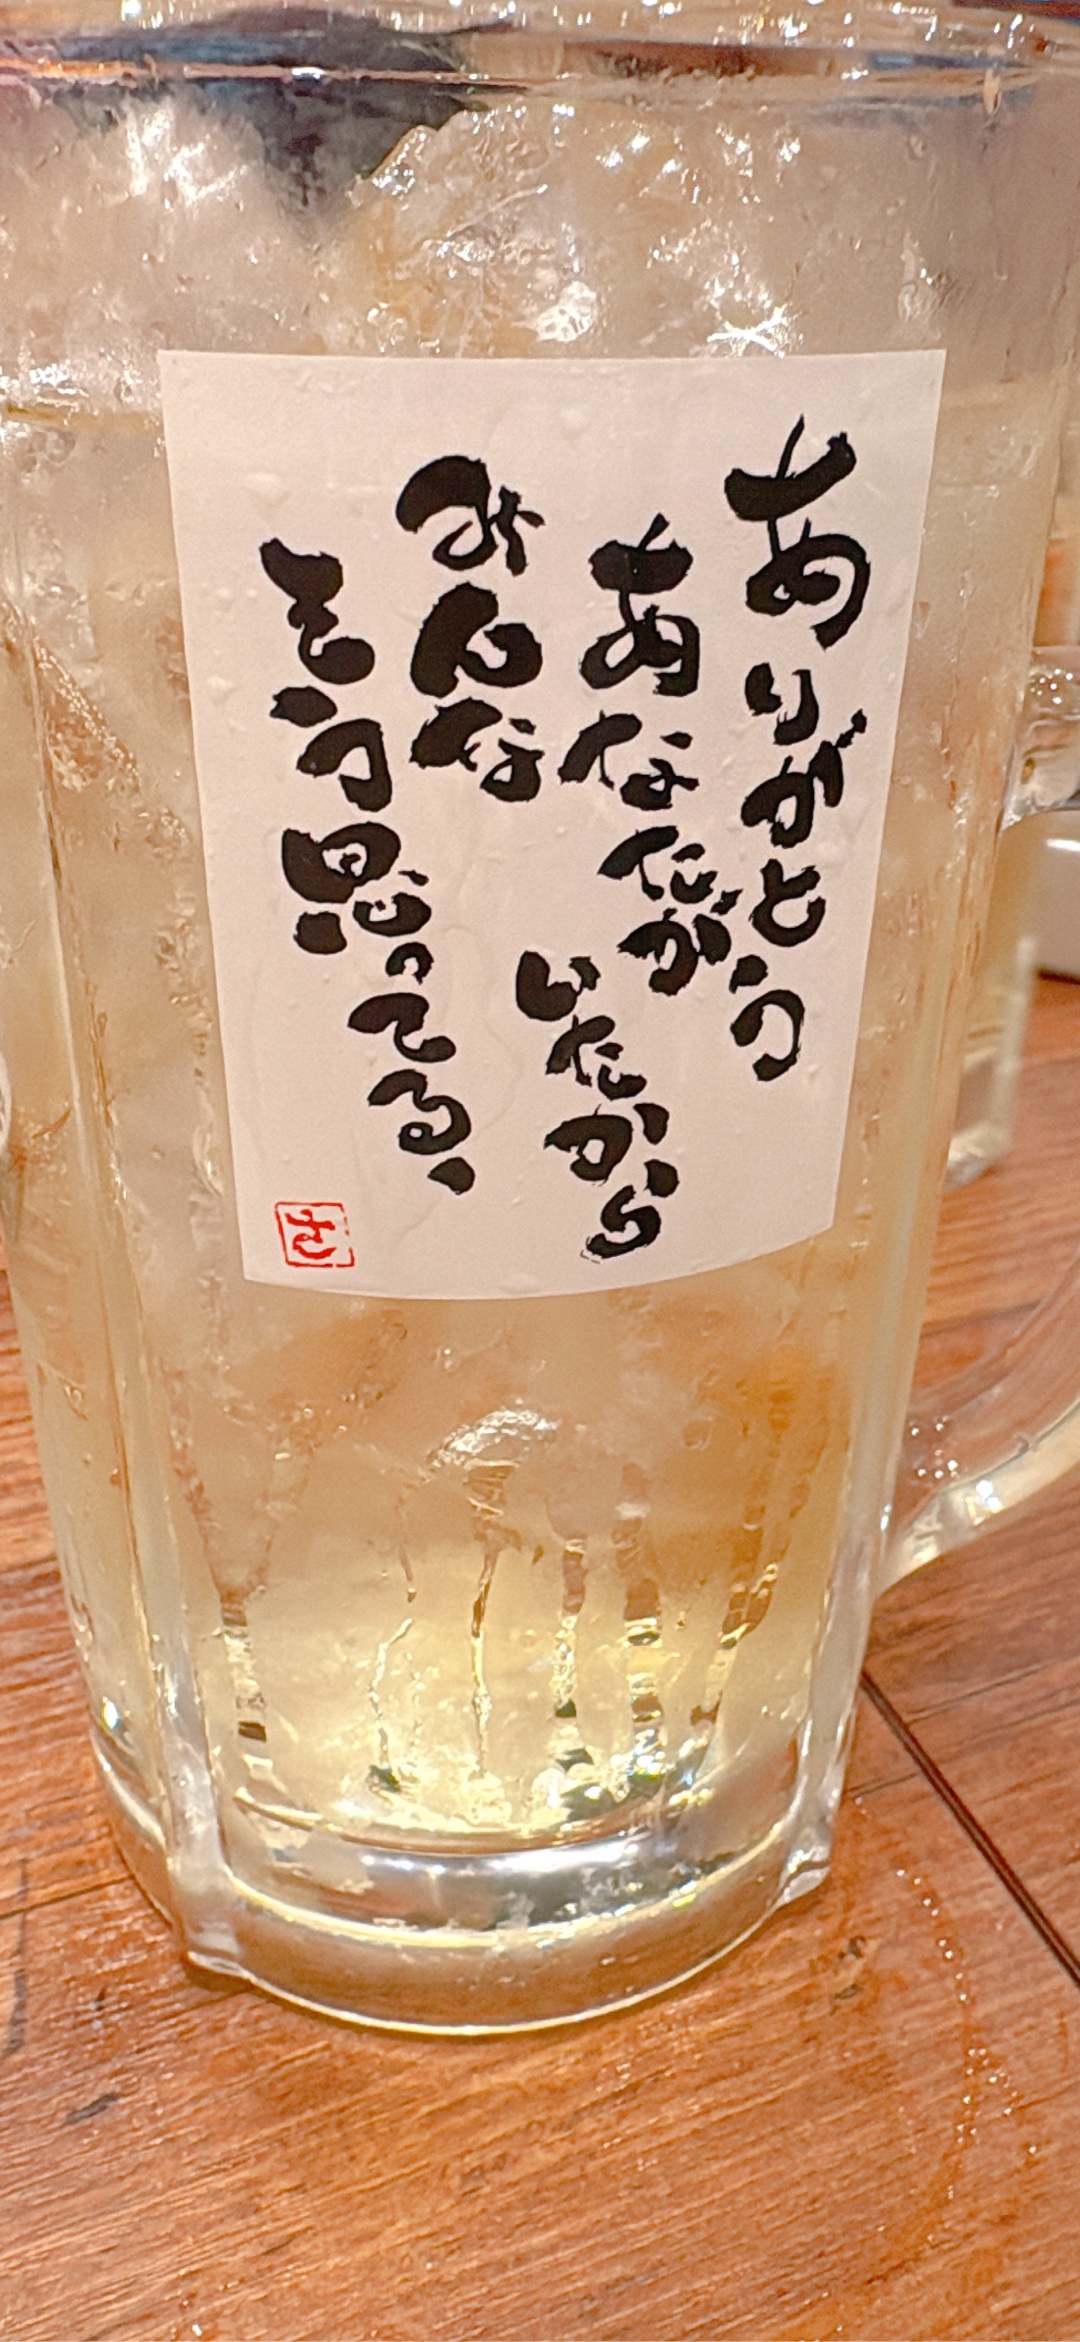 ありがとう
あなたが
いたから
みんな
そう思ってる、